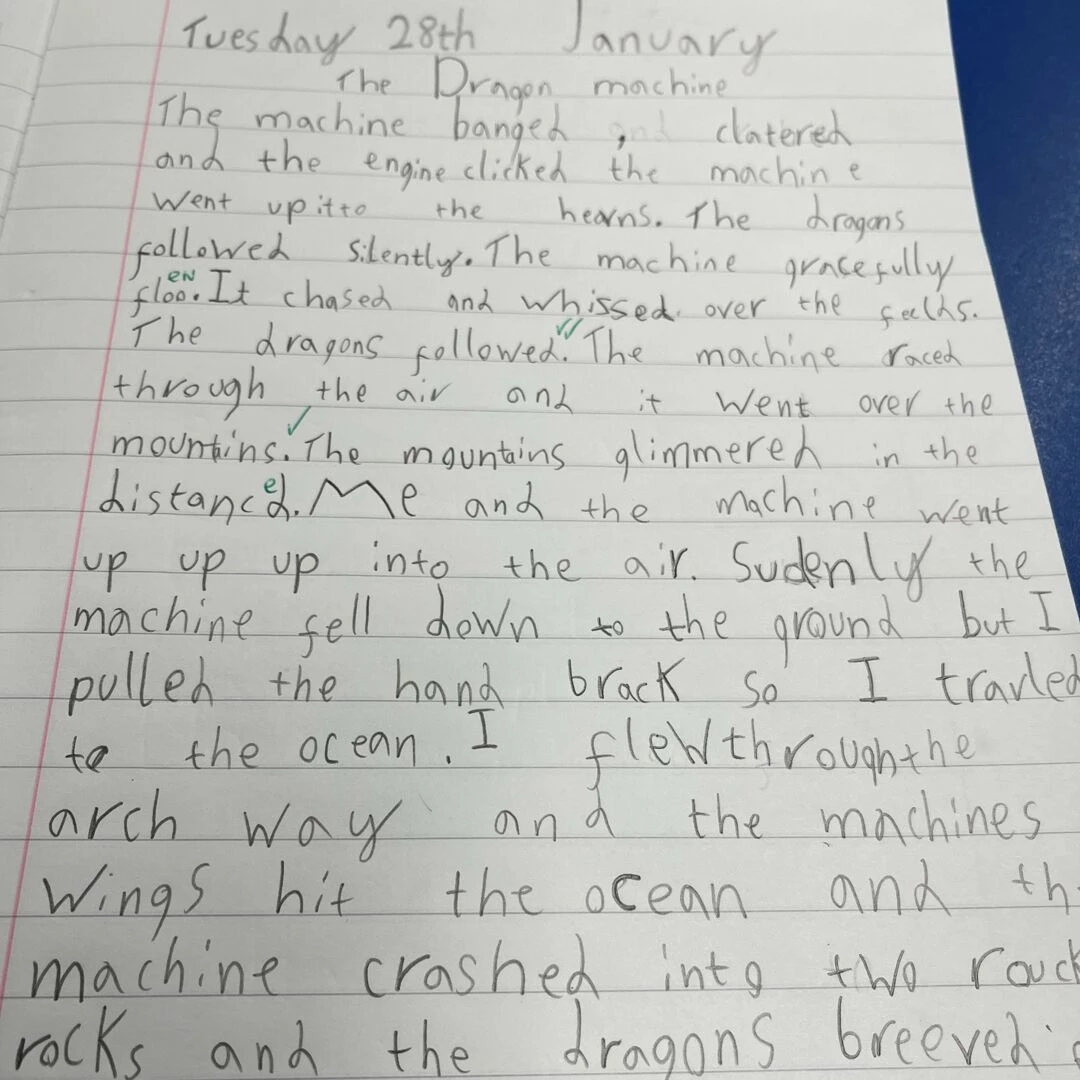 Tuesday 28th January
The Dragon machine
The machine banged and clatered
and the engine clicked the machine
Went up itto the hearns. The dragons
followed silently. The machine gracefully
en
floo. It chased and whissed over the feelds.
The dragons followed. The machine raced
through the air and it went over the
mountins. The mountains glimmered in the
distanced. Me and the machine went
up up up into the air. Sudenly the
machine fell down to the ground but I
pulled the hand brack so I travled
to the ocean. I flew through the
arch way and the machines
Wings hit the ocean and
machine crashed into two
rocks and the dragons breeved